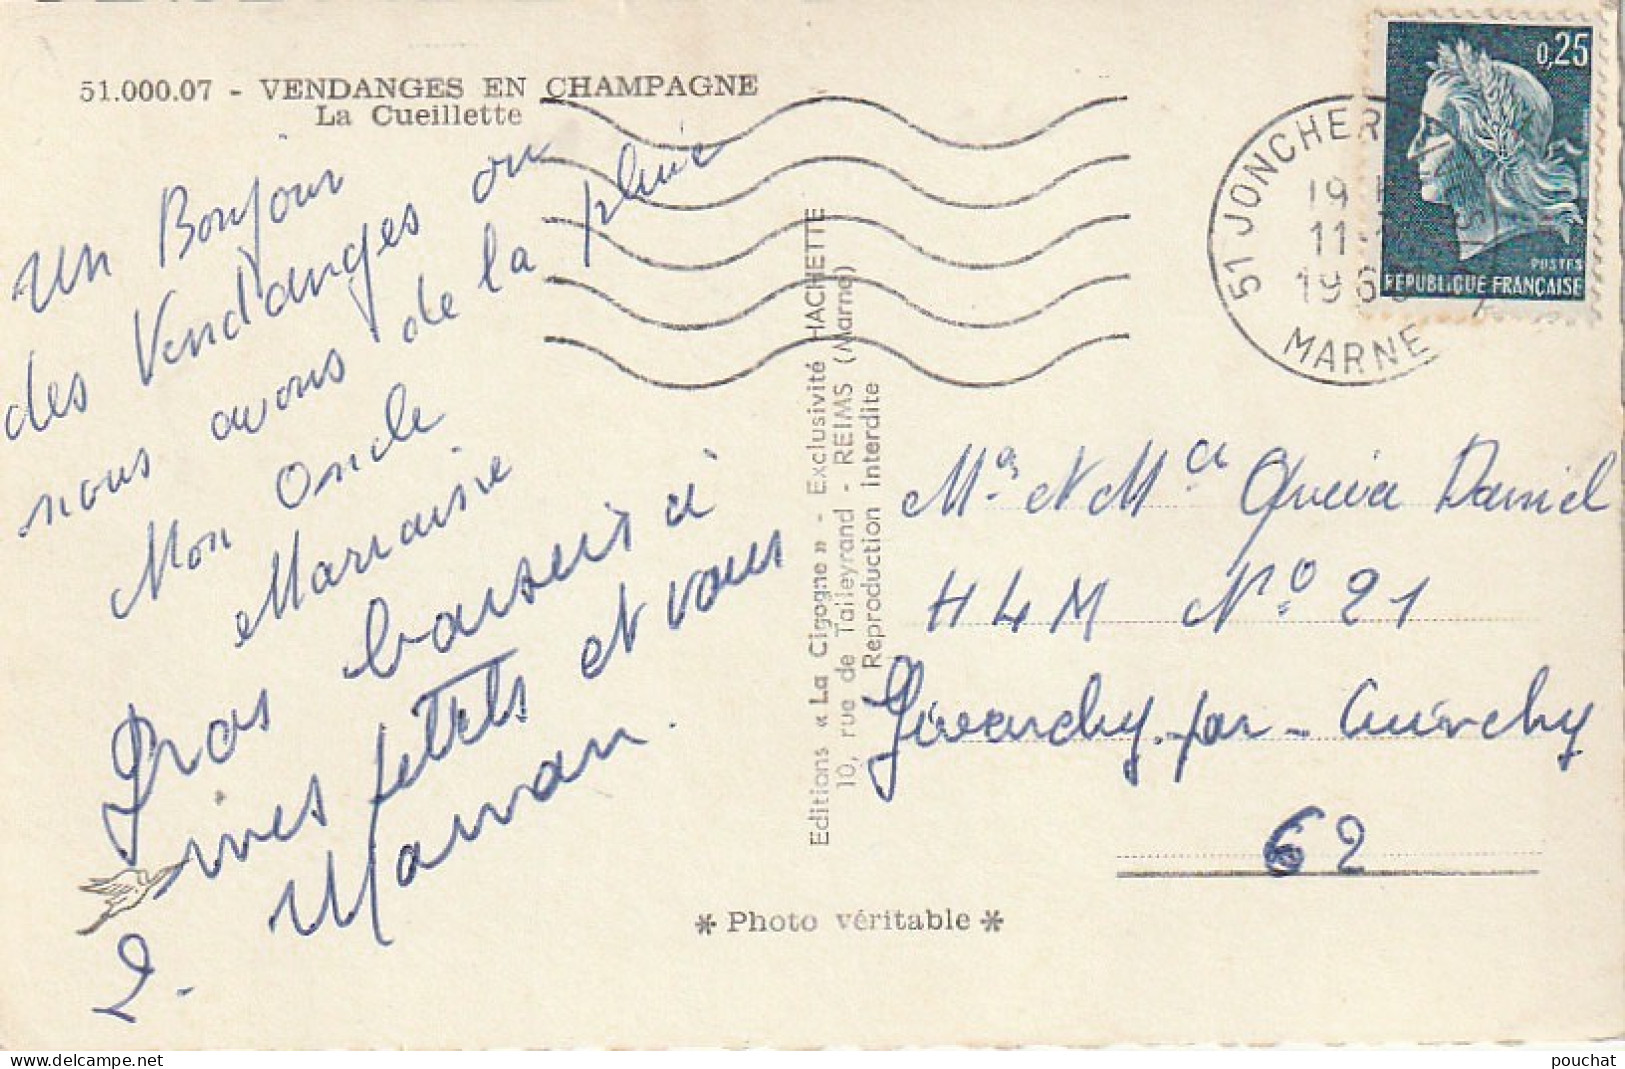 51.000.07 - VENDANGES EN CHAMPAGNE
La Cueillette
Un Bonjour
des Vendanges ou
nous avons de la pluie
Mon Oncle
Marraine
Gros baisers à
mes petites et vous
Maman.
2.
Editions « La Cigogne » - Exclusivité HACHETTE
10, rue de Talleyrand - REIMS (Marne)
Reproduction interdite
* Photo véritable *
0,25
POSTES
REPUBLIQUE FRANÇAISE
51 JONCHER
19
11
196
MARNE
Daniel
H L M N° 21
Givenchy-par-Cuinchy
62
pouchat
www.delcampe.net